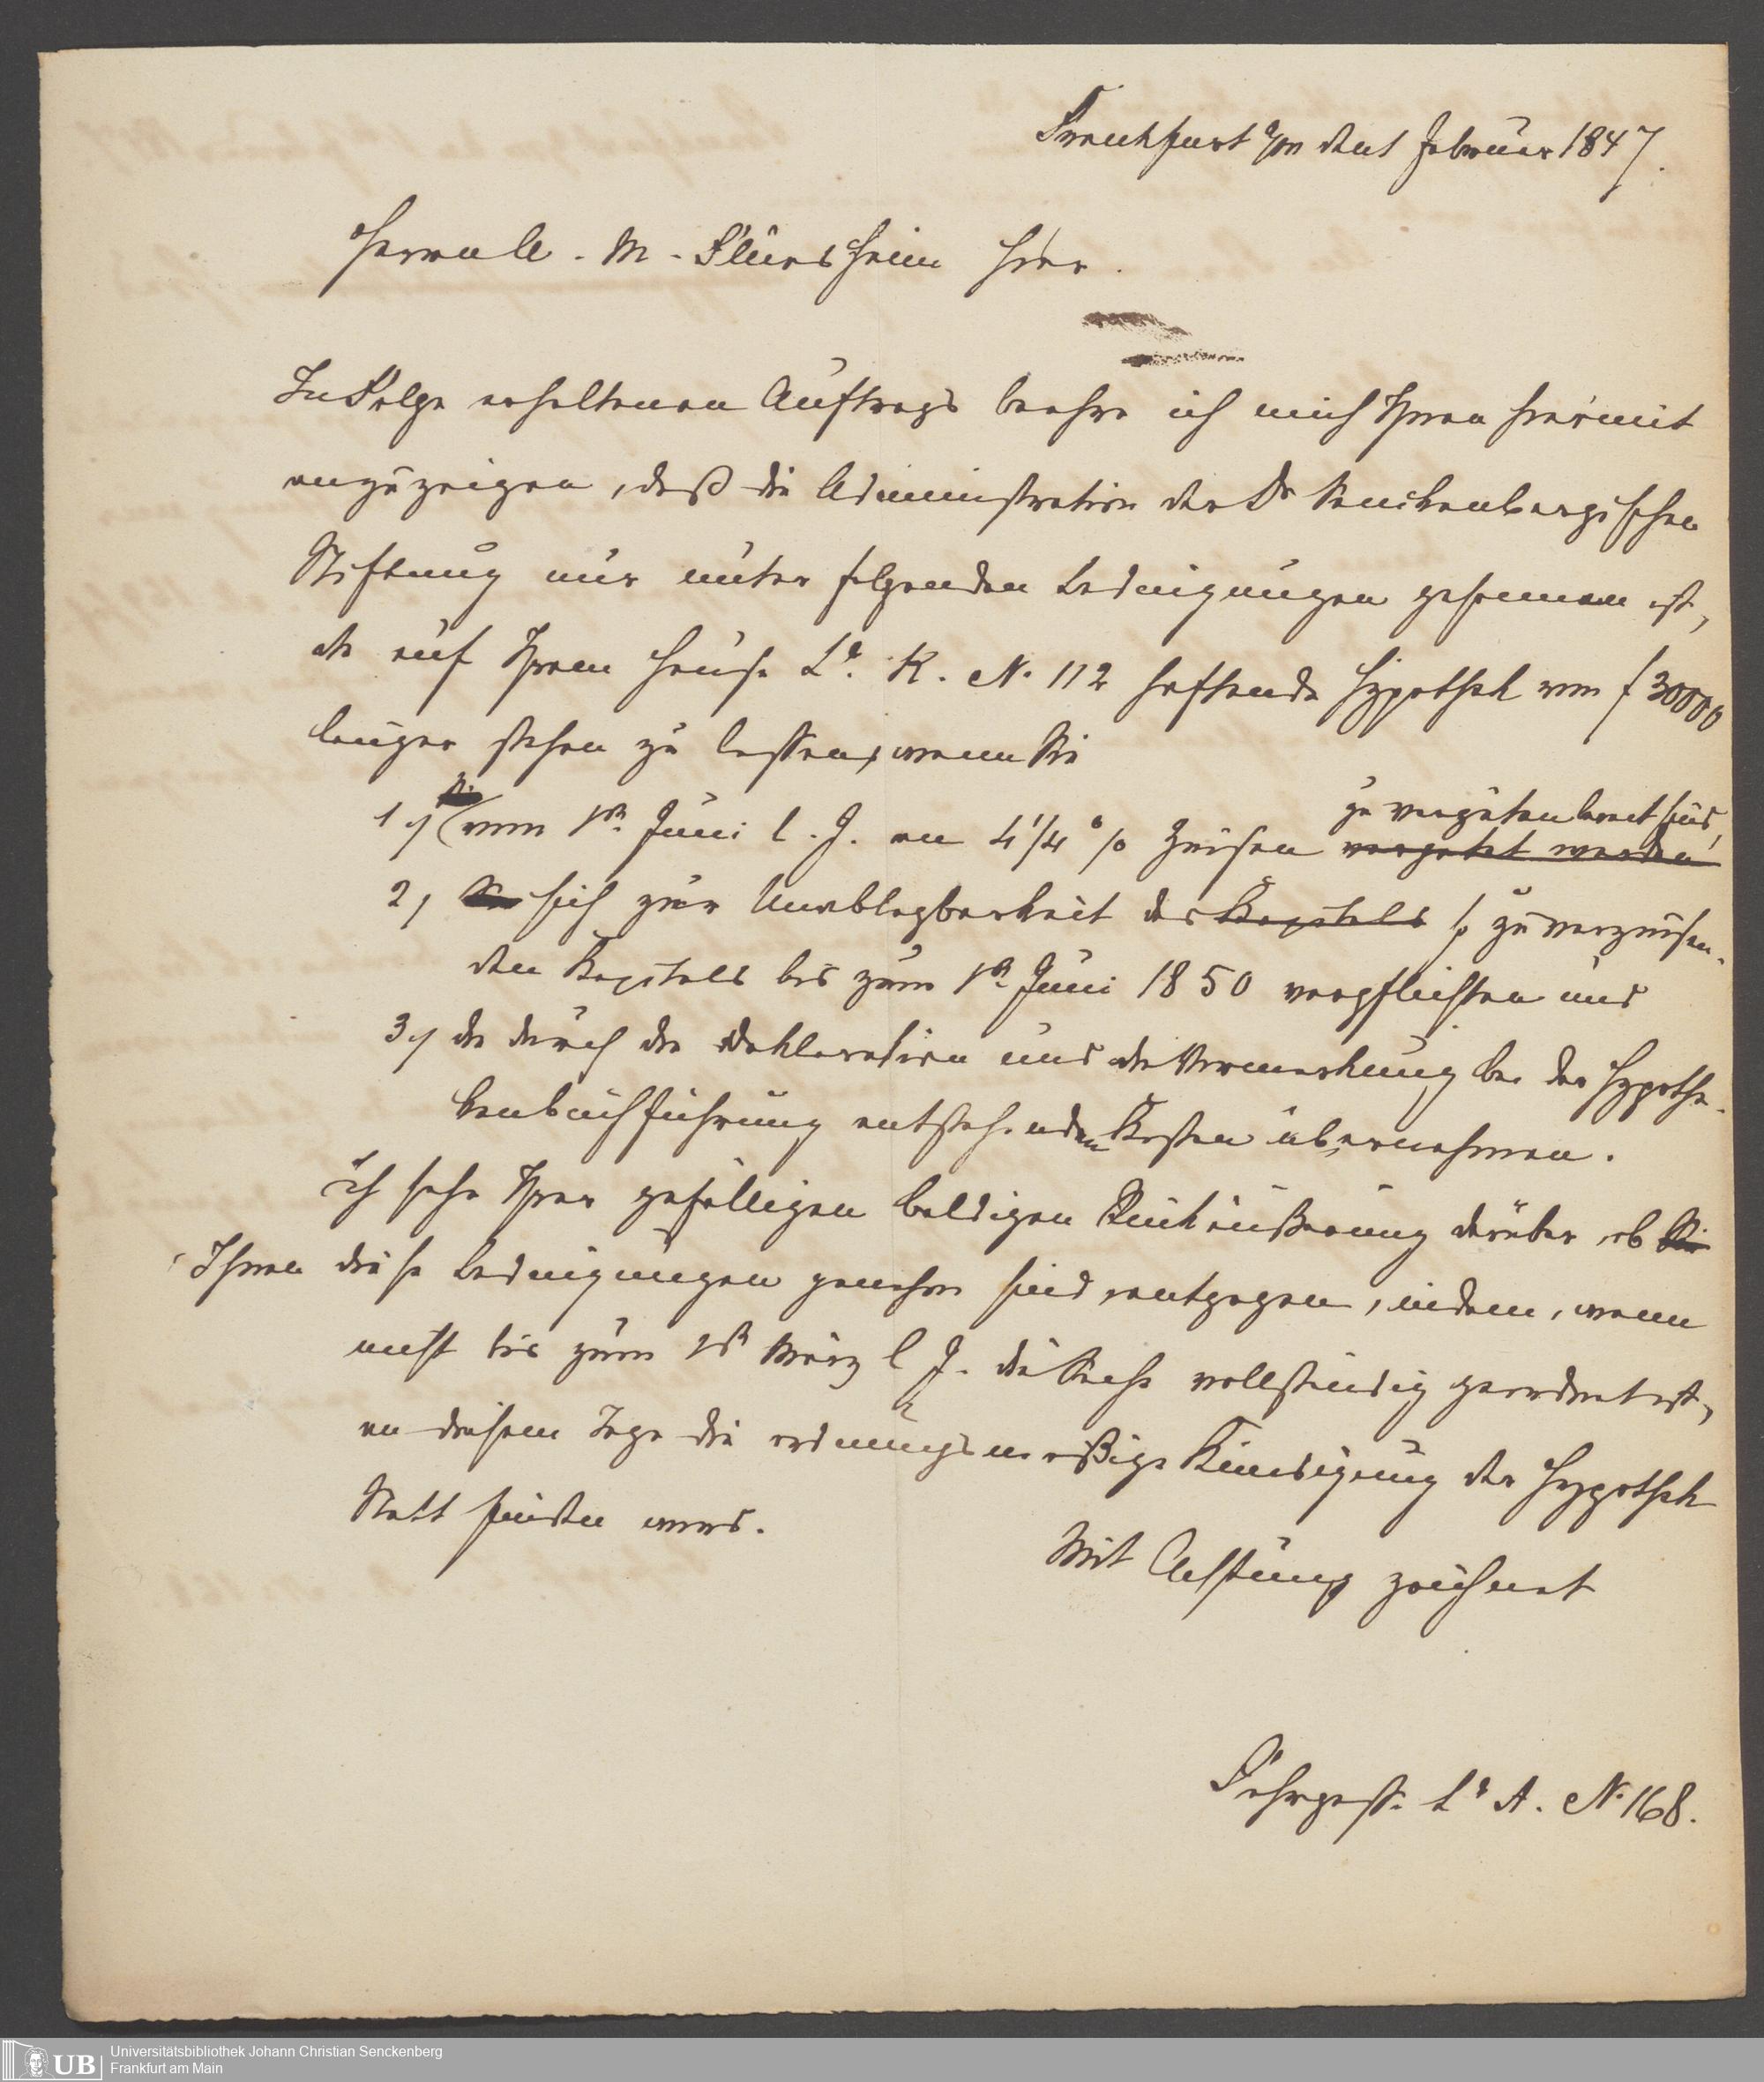 Frankfurt a/m den 1 Februar 1847.
Herrn M. Flürsheim hier.
In Folge erhaltenen Auftrags beehre ich mich Ihnen hiermit
anzuzeigen, daß die Administration der Dr Senckenbergischen
Stiftung nur unter folgenden Bedingungen gesonnen ist,
die auf Ihrem Hause Lr. K. No 112 haftende Hypothek von f 30000
länger stehen zu lassen, wenn Sie
1) vom 1sten Juni l. J. an 4 1/4 % Zinsen vergütet werden
zu vergüten bereit sind,
2) Sie sich zur Unablegbarkeit des Kapitals so zu verzinsen-
den Kapitals bis zum 1sten Juni 1850 verpflichten und
3) die durch die Deklaration und die Vormerkung bei der Hypothe-
kenbuchführung entstehenden Kosten übernehmen.
Ich sehe Ihrer gefälligen baldigen Rückäußerung darüber, ob Sie
Ihnen diese Bedingungen genehm sind, entgegen, indem, wenn
nicht bis zum 1sten März l. J. die Sache vollständig geordnet ist,
an diesem Tage die ordnungsmäßige Kündigung der Hypothek
Statt finden wird.
Mit Achtung zeichnet
Fahrgasse Lr A. No 168.
UB
Universitätsbibliothek Johann Christian Senckenberg
Frankfurt am Main